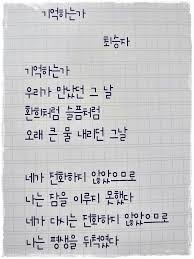 기억하는가
최승자
기억하는가
우리가 만났던 그 날
환희처럼 슬픔처럼
오래 큰 물 내리던 그날
네가 전화하지 않았으므로
나는 잠을 이루지 못했다
네가 다시는 전화하지 않았으므로
나는 평생을 뒤척였다